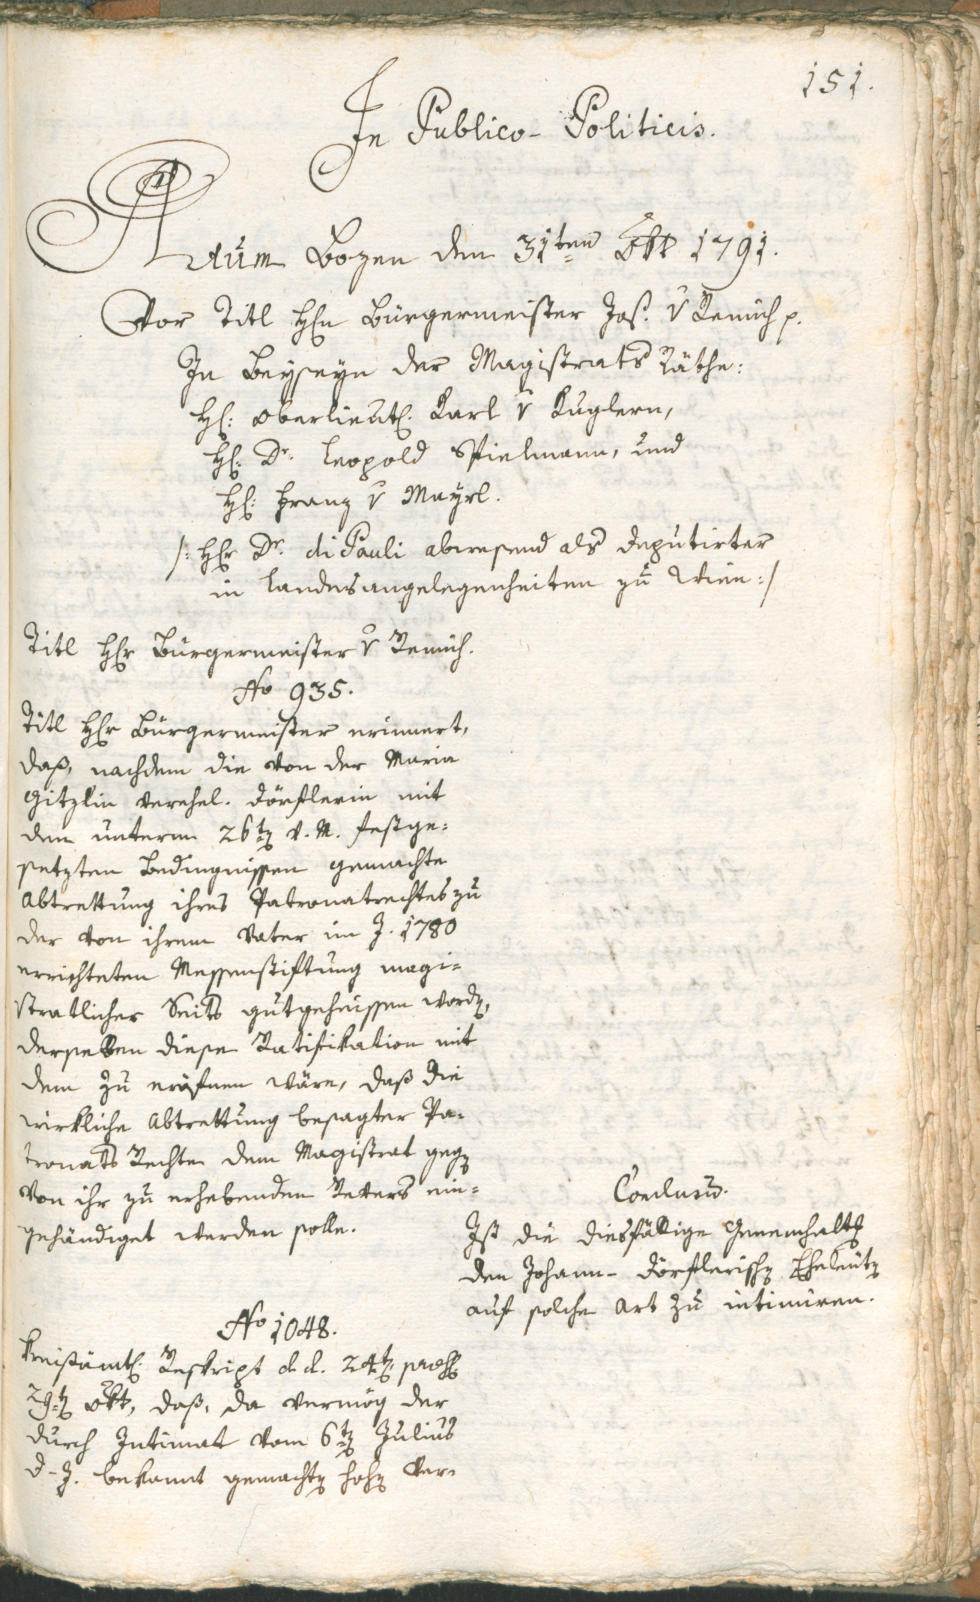 151.
In Publico-Politicis.
Actum Bozen den 31ten 8br 1791.
Vor Titl Hhn Bürgermeister Jos. v Remich p.
In Beyseyn der Magistrats Räthe:
Hh: Oberlieut. Karl v Kuglern,
Hh: Dr. Leopold Spielmann, und
Hh: Franz v Mayrl.
/: Hhr Dr. di Pauli abwesend als deputirter
in Landesangelegenheiten zu Wien :/
Titl Hhr Bürgermeister v Remich.
No 935.
Titl Hhr Bürgermeister erinnert,
daß, nachdem die von der Maria
Gitzlin verehel. Dörflerin mit
dem unterm 26t v. M. festge=
setzten Bedingnissen gemachte
Abtrettung ihres Patronatrechtes zu
der von ihrem Vater im J. 1780
errichteten Messenstiftung magi=
stratlicher Seits gutgeheissen worden,
derselben diese Ratifikation mit
dem zu eröfnen wäre, daß die
wirkliche Abtrettung besagter Pa=
tronats Rechte dem Magistrat gegen
von ihr zu erhebenden Revers ein=
gehändiget werden solle.
Conclusum.
Ist die diesfällige Gewenhalt
den Johann-Dörflerischen Eheleuten
auf solche Art zu intimiren.
No 1048.
Kreisämtl. Reskript d. d. 24t. praes
29t Okt, daß, da vermög der
durch Intimat vom 6t Julius
d-J. bekannt gemachten hohen Ver=